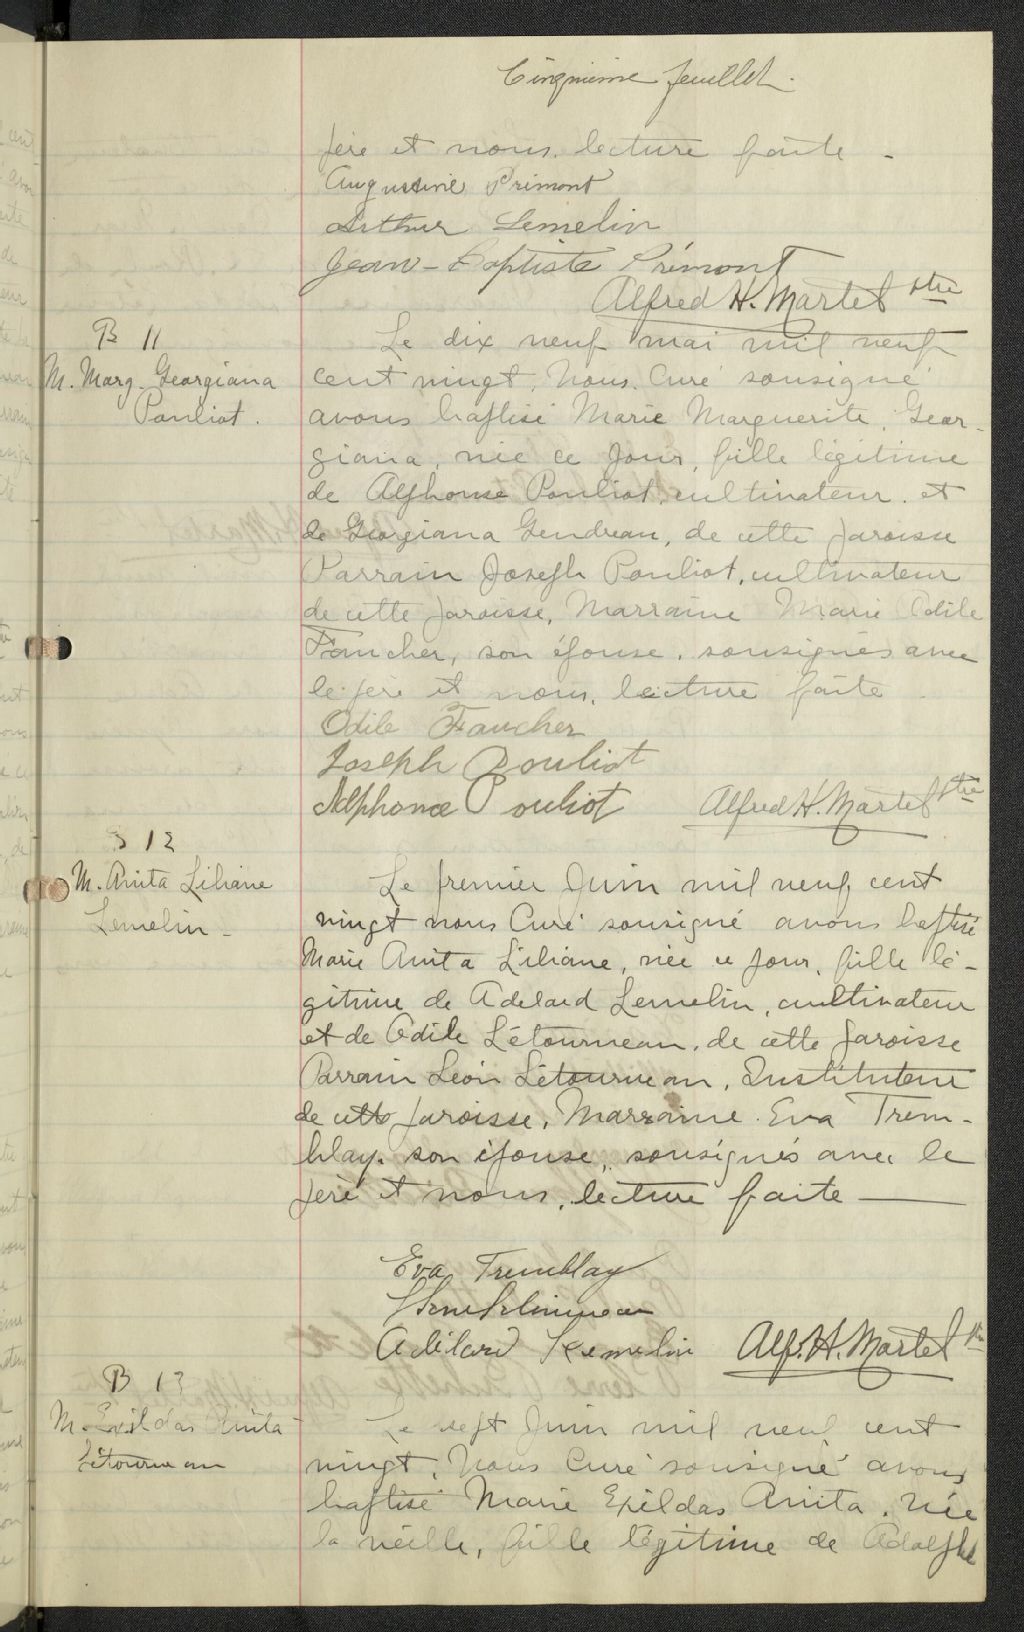 Cinquième feuillet.
père et nous. lecture faite -
Augustine Prémont
Arthur Lemelin
Jean-Baptiste Prémont
Alfred H. Martel ptre
B 11
M. Marg. Georgiana
Pouliot.
Le dix neuf mai mil neuf
cent vingt, Nous Curé sousigné
avons baptisé Marie Marguerite, Geor-
giana, née ce jour, fille légitime
de Alphonse Pouliot, cultivateur et
de Georgiana Gendreau, de cette paroisse
Parrain Joseph Pouliot, cultivateur
de cette paroisse, Marraine Marie Odile
Faucher, son épouse, sousignés avec
le père et nous, lecture faite
Odile Faucher
Joseph Pouliot
Alphonse Pouliot
Alfred H. Martel ptre
B 12
M. Anita Liliane
Lemelin -
Le premier Juin mil neuf cent
vingt nous Curé sousigné avons baptisé
Marie Anita Liliane, née ce jour, fille lé-
gitime de Adelard Lemelin, cultivateur
et de Odile Létourneau, de cette paroisse
Parrain Léon Létourneau, Instituteur
de cette paroisse, Marraine Eva Trem-
blay, son épouse, sousignés avec le
père et nous, lecture faite
Eva Tremblay
Adélard Lemelin
Alf. H. Martel ptre
B 13
M. Exildas Anita
Létourneau
Le sept Juin mil neuf cent
vingt, Nous Curé sousigné avons
baptisé Marie Exildas Anita, née
la veille, fille légitime de Adolphe